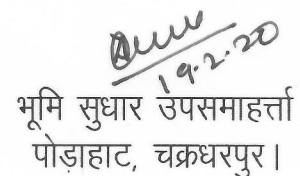 19.2.20
भूमि सुधार उपसमाहर्त्ता
पोड़ाहाट, चक्रधरपुर।